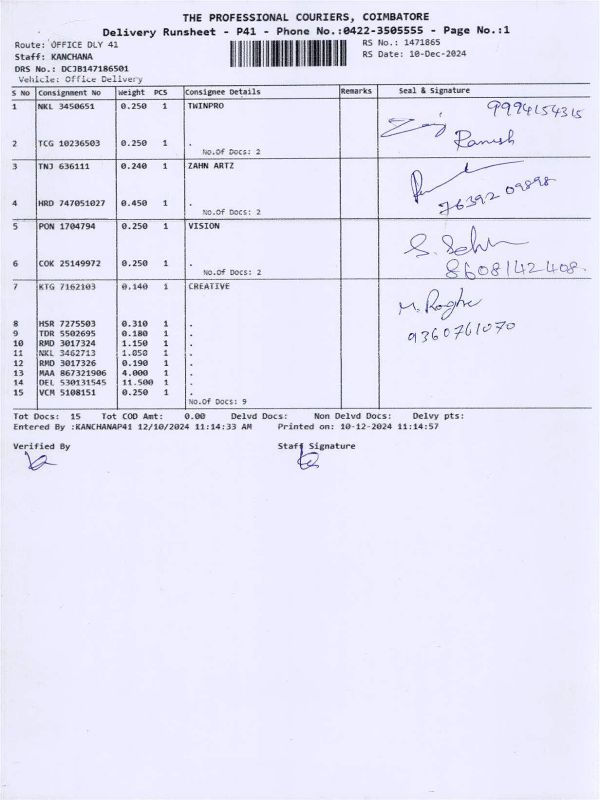 THE PROFESSIONAL COURIERS, COIMBATORE
Delivery Runsheet - P41 - Phone No.:0422-3505555 - Page No.:1
Route: OFFICE DLY 41 RS No.: 1471865
Staff: KANCHANA RS Date: 10-Dec-2024
DRS No.: DCJB147186501
Vehicle: Office Delivery
S No Consignment No Weight PCS Consignee Details Remarks Seal & Signature
1 NKL 3450651 0.250 1 TWINPRO 9994154315
2 TCG 10236503 0.250 1 . Ramesh
No.Of Docs: 2
3 TNJ 636111 0.240 1 ZAHN ARTZ
4 HRD 747051027 0.450 1 . 76392 09898
No.Of Docs: 2
5 PON 1704794 0.250 1 VISION
6 COK 25149972 0.250 1 . 8608142408.
No.Of Docs: 2
7 KTG 7162103 0.140 1 CREATIVE
8 HSR 7275503 0.310 1 . 9360761070
9 TDR 5502695 0.180 1 .
10 RMD 3017324 1.150 1 .
11 NKL 3462713 1.050 1 .
12 RMD 3017326 0.190 1 .
13 MAA 867321906 4.000 1 .
14 DEL 530131545 11.500 1 .
15 VCM 5108151 0.250 1 .
No.Of Docs: 9
Tot Docs: 15 Tot COD Amt: 0.00 Delvd Docs: Non Delvd Docs: Delvy pts:
Entered By :KANCHANAP41 12/10/2024 11:14:33 AM Printed on: 10-12-2024 11:14:57
Verified By Staff Signature